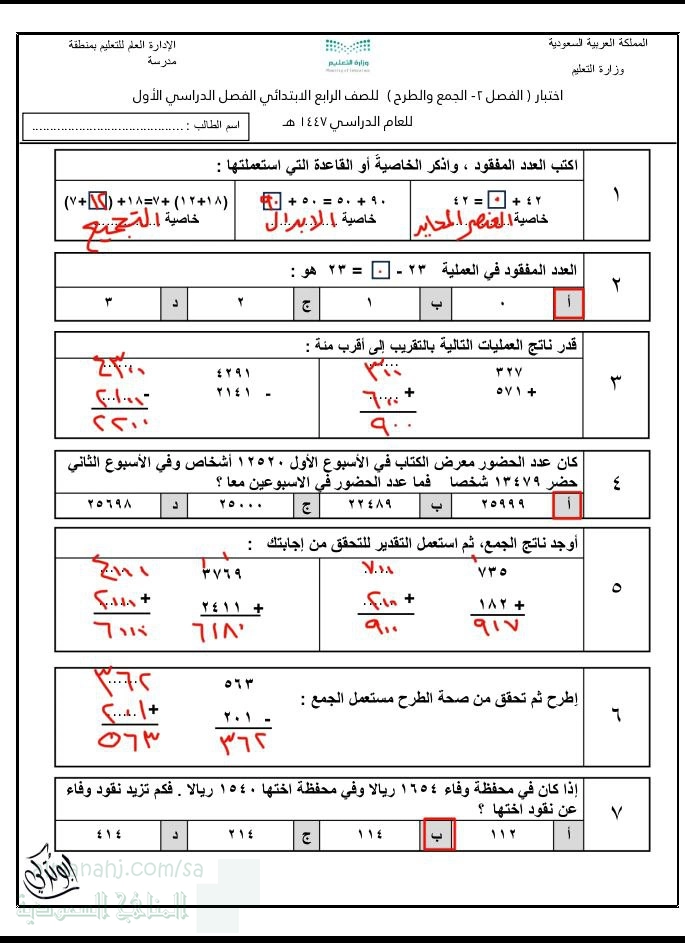 المملكة العربية السعودية
وزارة التعليم
وزارة التعليم
Ministry of Education
الإدارة العام للتعليم بمنطقة
مدرسة
اختبار ( الفصل ٢- الجمع والطرح ) للصف الرابع الابتدائي الفصل الدراسي الأول
للعام الدراسي ١٤٤٧ هـ
اسم الطالب : ..........................................
١
اكتب العدد المفقود ، واذكر الخاصيةَ أو القاعدة التي استعملتها :
٤٢ + ٠ = ٤٢
خاصية العنصر المحايد
٩٠ + ٥٠ = ٥٠ + ٩٠
خاصية الابدال
(١٨+١٢) +٧=١٨+ (١٢+٧)
خاصية التجميع
٢
العدد المفقود في العملية ٢٣ - ٠ = ٢٣ هو :
أ ٠ ب ١ ج ٢ د ٣
٣
قدر ناتج العمليات التالية بالتقريب إلى أقرب مئة :
٣٢٧ ٣٠٠
+ ٥٧١ + ٦٠٠
٩٠٠
٤٢٩١ ٤٣٠٠
- ٢١٤١ - ٢١٠٠
٢٢٠٠
٤
كان عدد الحضور معرض الكتاب في الأسبوع الأول ١٢٥٢٠ أشخاص وفي الأسبوع الثاني
حضر ١٣٤٧٩ شخصا فما عدد الحضور في الاسبوعين معا ؟
أ ٢٥٩٩٩ ب ٢٢٤٨٩ ج ٢٥٠٠٠ د ٢٥٦٩٨
٥
أوجد ناتج الجمع، ثم استعمل التقدير للتحقق من إجابتك :
١
٧٣٥ ٧٠٠
+ ١٨٢ + ٢٠٠
٩١٧ ٩٠٠
١ ١
٣٧٦٩ ٤٠٠٠
+ ٢٤١١ + ٢٠٠٠
٦١٨٠ ٦٠٠٠
٦
إطرح ثم تحقق من صحة الطرح مستعمل الجمع :
٥٦٣ ٣٦٢
- ٢٠١ + ٢٠١
٣٦٢ ٥٦٣
٧
إذا كان في محفظة وفاء ١٦٥٤ ريالا وفي محفظة اختها ١٥٤٠ ريالا . فكم تزيد نقود وفاء
عن نقود اختها ؟
أ ١١٢ ب ١١٤ ج ٢١٤ د ٤١٤
ابوتركي
anahj.com/sa
المناهج السعودية